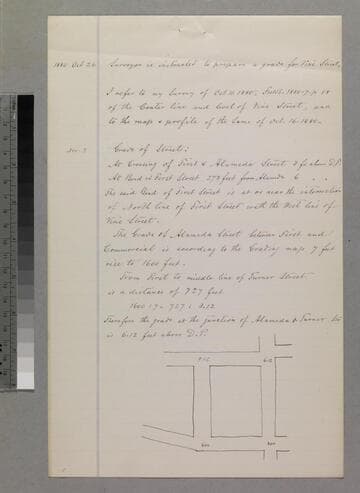 1880 Oct 26 Surveyor is instructed to prepare a grade for Vine Street.
I refer to my Survey of Oct. 11. 1880,
of the Center line and level of Vine Street, and
to the map & profile of the same of Oct. 16. 1880.
Nov. 3 Grade of Streets:
At Crossing of First & Alameda Street above D.P.
At Bend in First Street 273 feet from Alameda 6 " "
The said Bend of First Street is at or near the intersection
of North line of First Street with the West line of
Vine Street.
The Grade of Alameda Street between First and
Commercial is according to the Grading map 7 feet
rise to 1600 feet.
From First to middle line of Turner Street
is a distance of 727 feet
1600 : 7 = 727 :
Therefore the grade at the junction of Alameda & Turner Str
is feet above D.P.
6.00